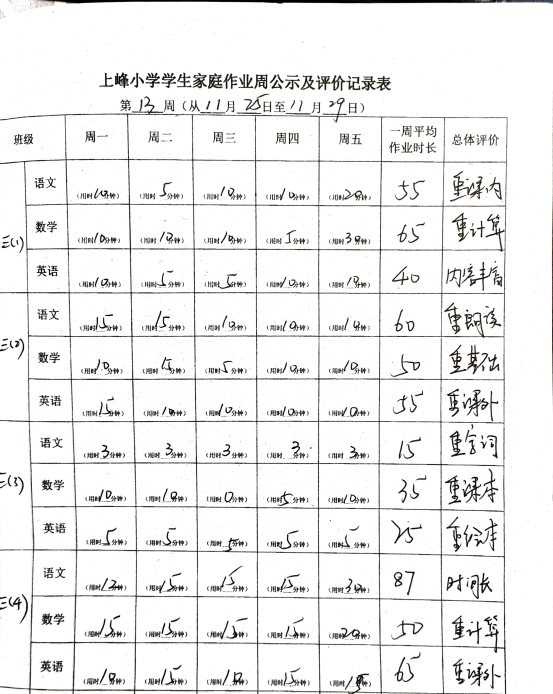 上峰小学学生家庭作业周公示及评价记录表
第 13 周（从 11 月 25 日至 11 月 29 日）
班级 周一 周二 周三 周四 周五 一周平均作业时长 总体评价
三(1) 语文 （用时10分钟） （用时5分钟） （用时10分钟） （用时10分钟） （用时20分钟） 55 重课内
数学 （用时10分钟） （用时10分钟） （用时10分钟） （用时5分钟） （用时30分钟） 65 重计算
英语 （用时10分钟） （用时5分钟） （用时5分钟） （用时10分钟） （用时10分钟） 40 内容丰富
三(2) 语文 （用时15分钟） （用时15分钟） （用时10分钟） （用时10分钟） （用时10分钟） 60 重朗读
数学 （用时10分钟） （用时15分钟） （用时5分钟） （用时10分钟） （用时10分钟） 50 重基础
英语 （用时15分钟） （用时10分钟） （用时10分钟） （用时10分钟） （用时10分钟） 55 重课外
三(3) 语文 （用时3分钟） （用时3分钟） （用时3分钟） （用时3分钟） （用时3分钟） 15 重字词
数学 （用时10分钟） （用时10分钟） （用时0分钟） （用时5分钟） （用时10分钟） 35 重课本
英语 （用时5分钟） （用时5分钟） （用时5分钟） （用时5分钟） （用时5分钟） 25 重绘本
三(4) 语文 （用时12分钟） （用时15分钟） （用时15分钟） （用时15分钟） （用时30分钟） 87 时间长
数学 （用时15分钟） （用时15分钟） （用时15分钟） （用时15分钟） （用时20分钟） 50 重计算
英语 （用时10分钟） （用时15分钟） （用时10分钟） （用时15分钟） （用时15分钟） 65 重课外